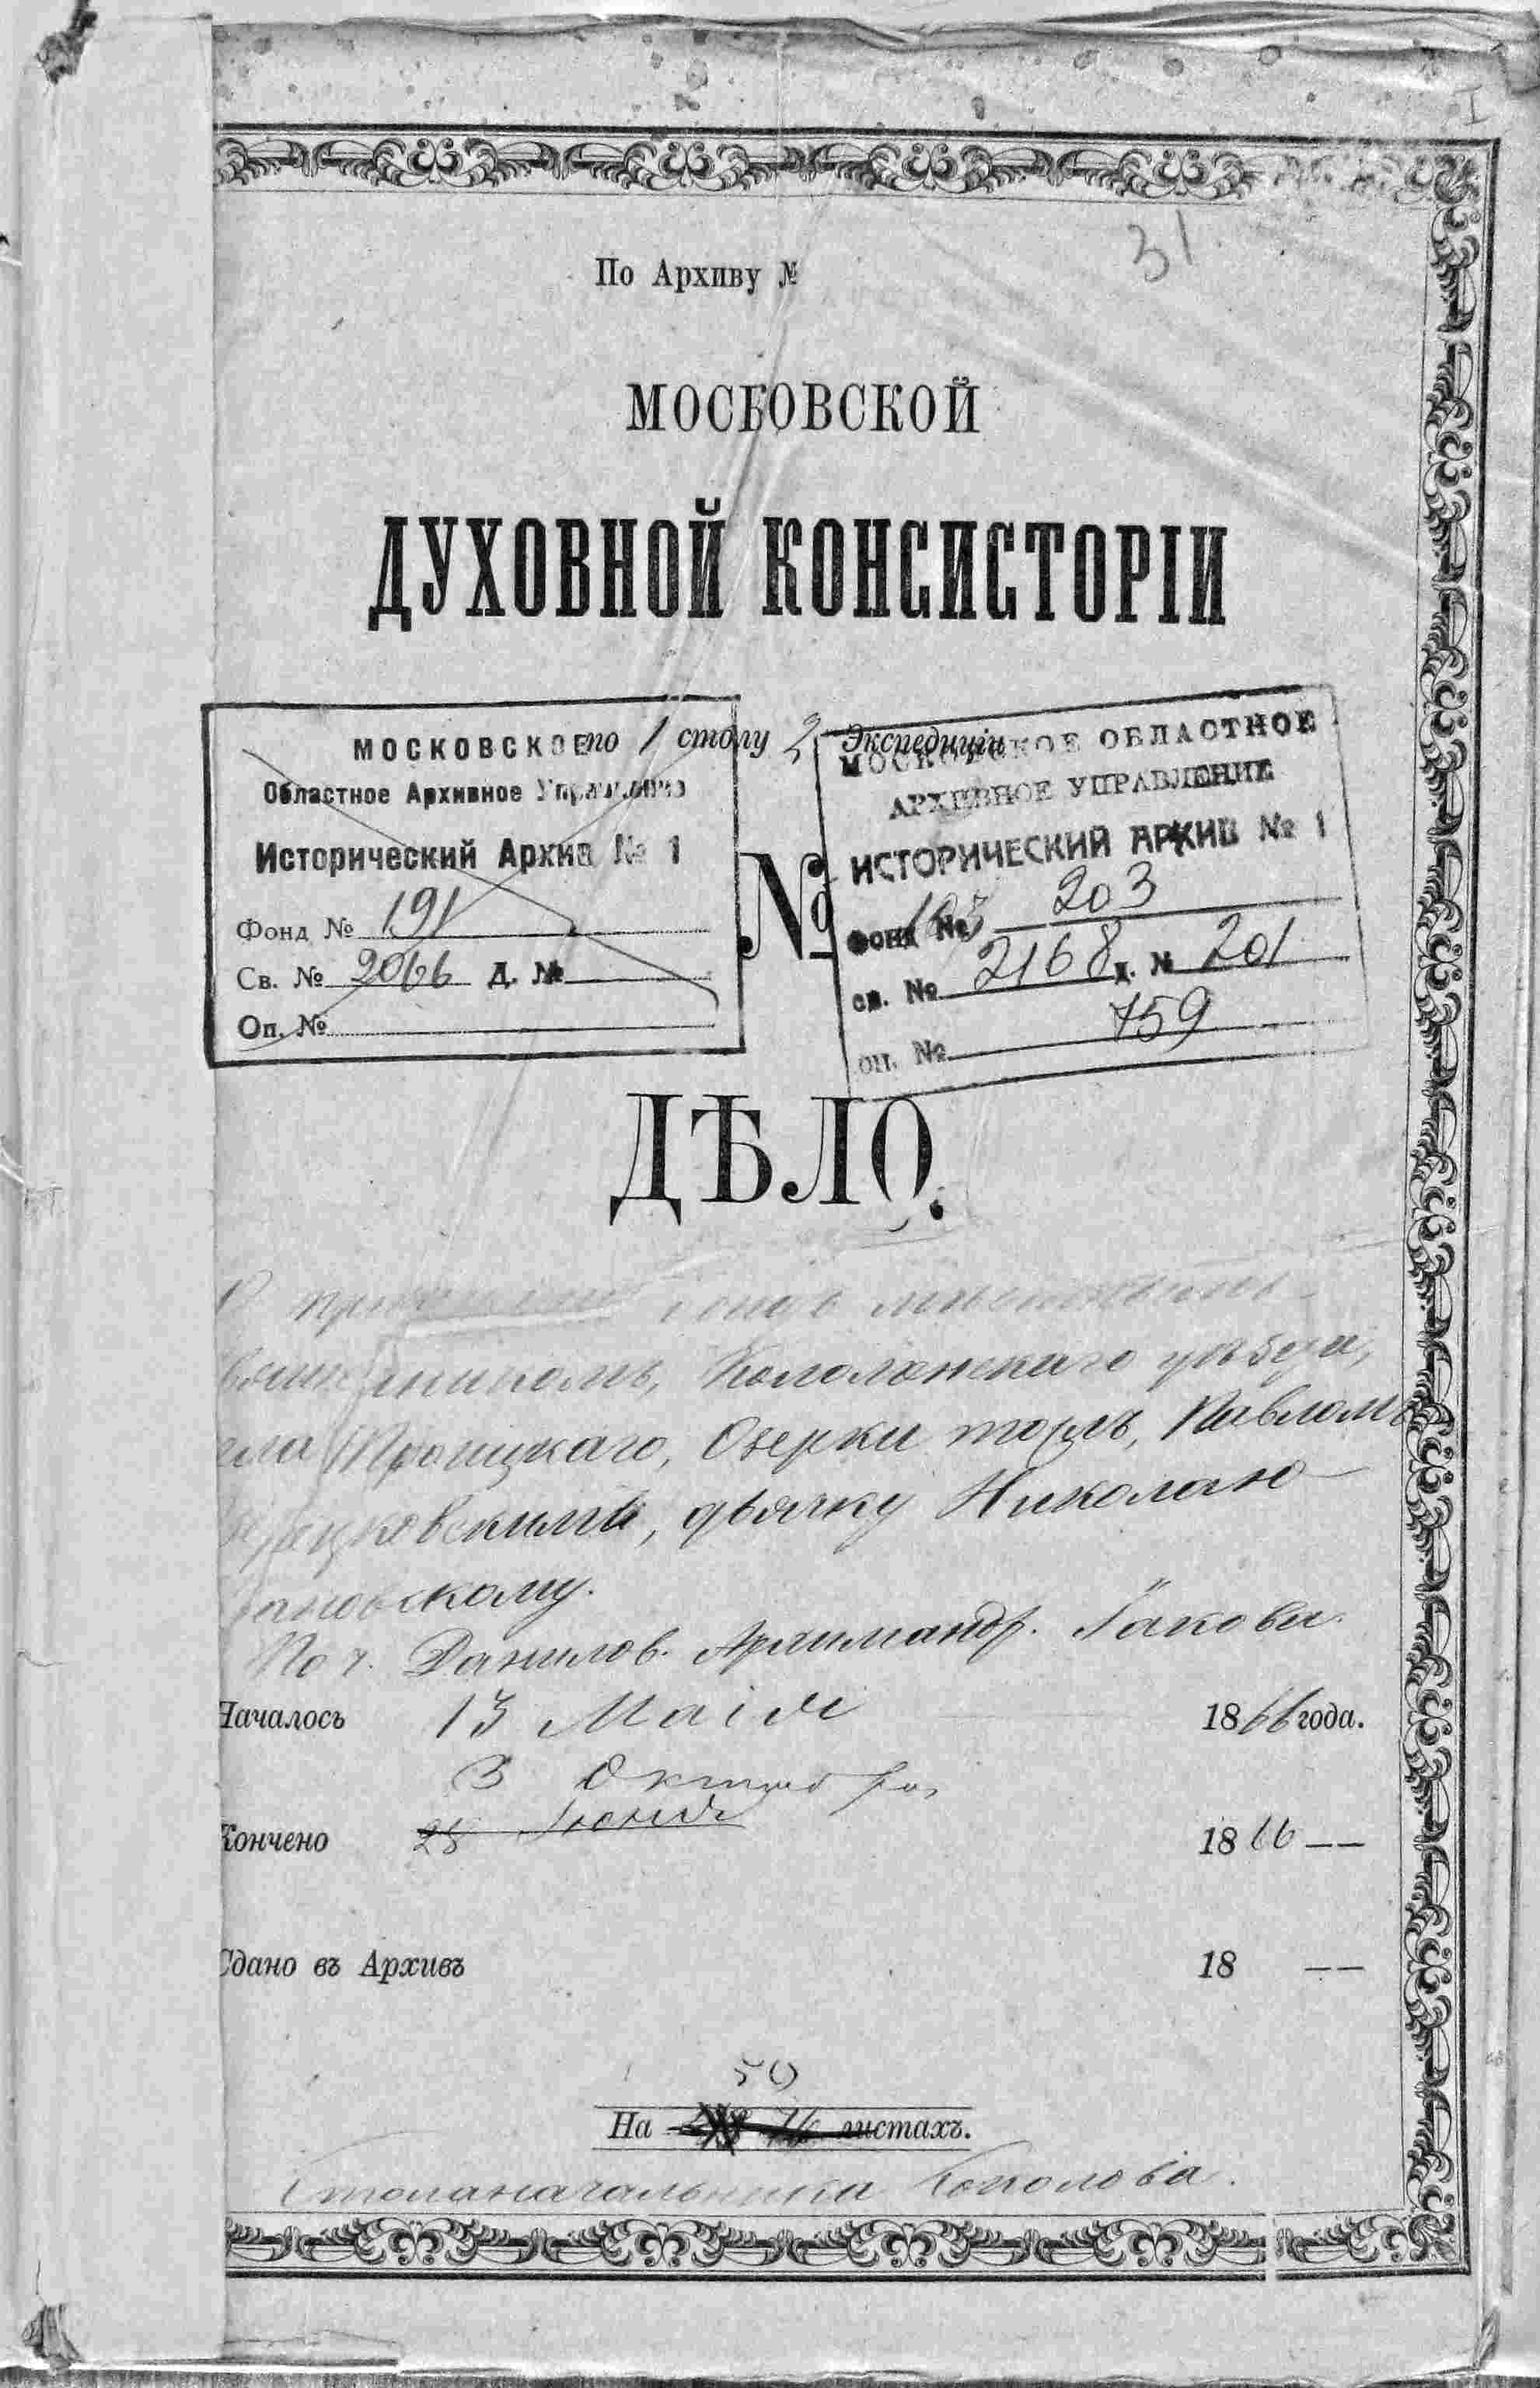 I
31
По Архиву №
МОСКОВСКОЙ
ДУХОВНОЙ КОНСИСТОРІИ
по 1 столу 2 Экспедиціи
МОСКОВСКОЕ
Областное Архивное Управление
Исторический Архив № 1
Фонд № 191
Св. № 2066 Д. №
Оп. №
№
МОСКОВСКОЕ ОБЛАСТНОЕ
АРХИВНОЕ УПРАВЛЕНИЕ
ИСТОРИЧЕСКИЙ АРХИВ № 1
фонд № 203
св. № 2168 д. № 201
оп. № 759
ДѢЛО.
О
Коломенскаго уѣзда,
Троицкаго, Озерки тожъ, Павломъ
дьячку Николаю
По ч. Данилов. Архимандр. Іакова.
Началось 13 Маія 1866 года.
3 Октября
Кончено 28 Іюня 1866 — —
Сдано въ Архивъ 18 — —
59
На листахъ.
Столоначальника Соколова.